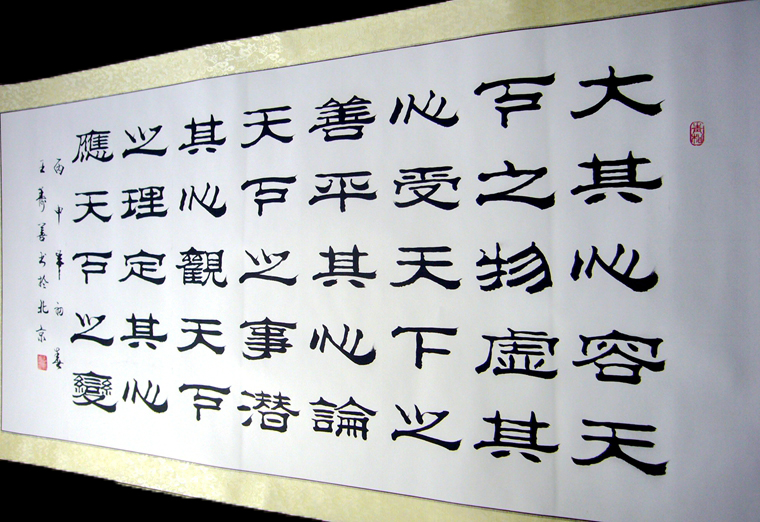 大其心容天
下之物虛其
心受天下之
善平其心論
天下之事潜
其心觀天下
之理定其心
應天下之變
丙申年初春
王善书於北京